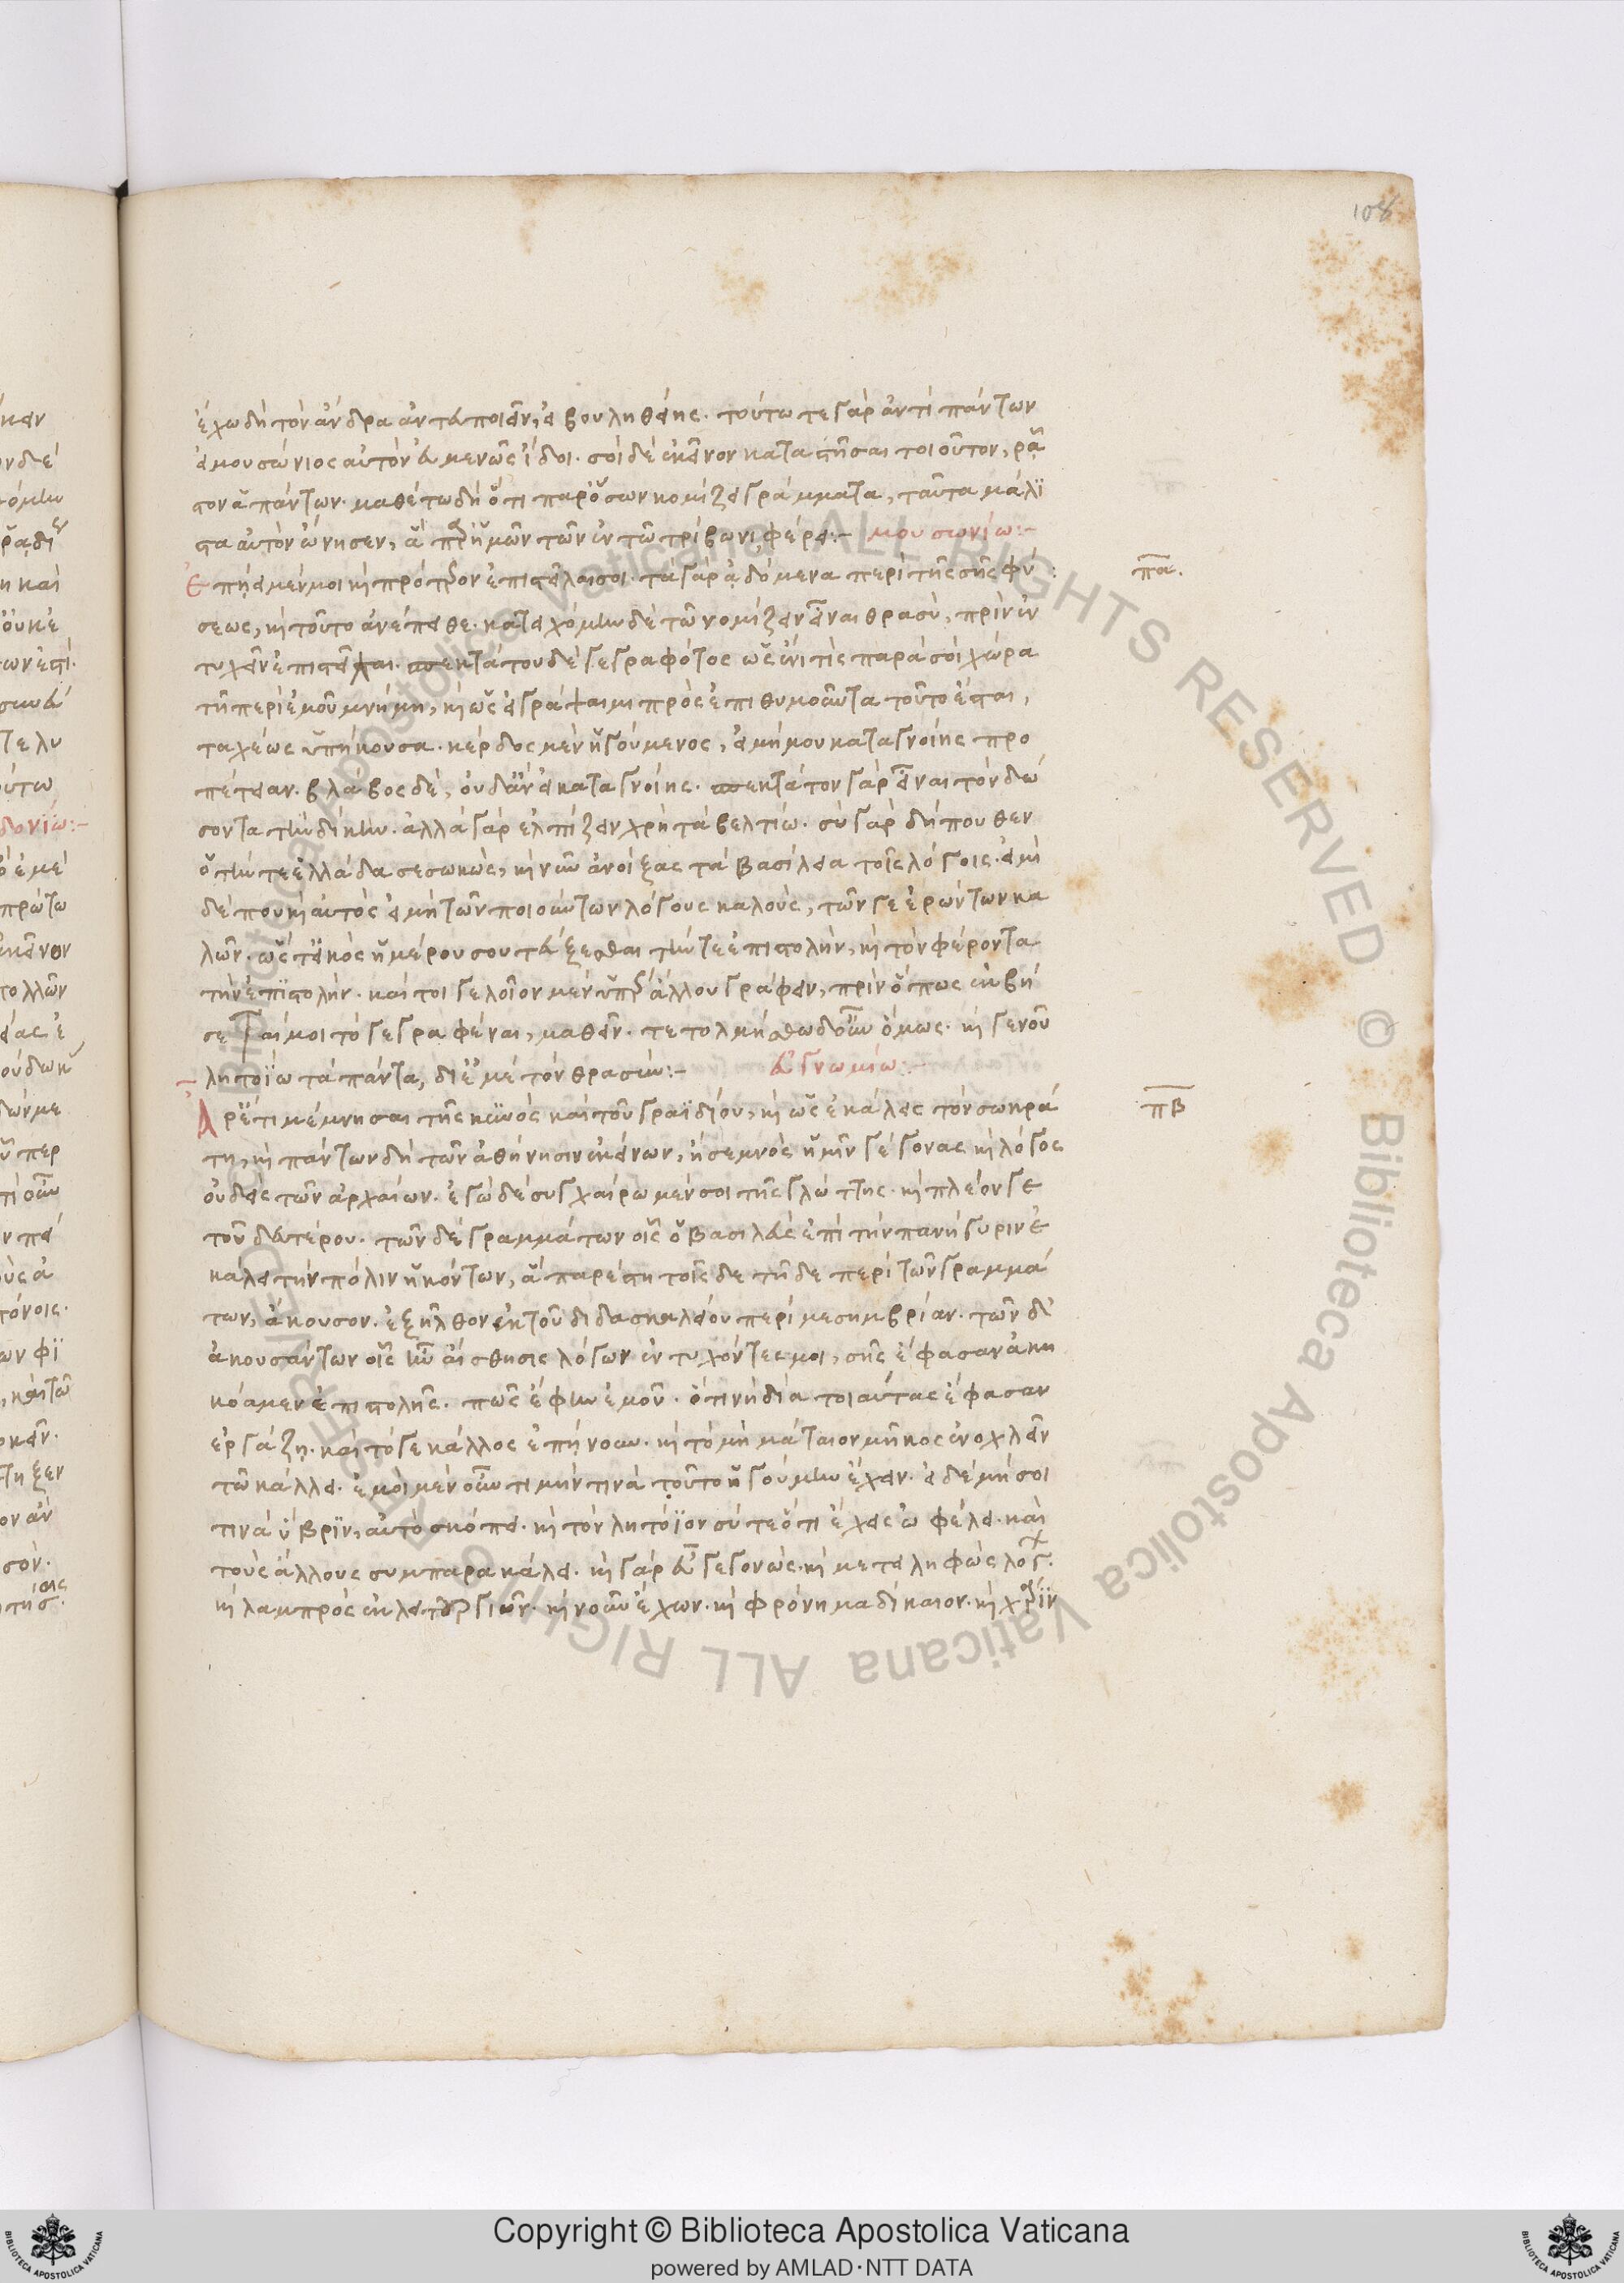 108
ἔχω δὴ τὸν ἄνδρα ἀντευποιεῖν, εἰ βουληθείης. τούτω τε γὰρ ἀντὶ πάντων
εἰ μουσώνιος αὐτὸν εὐμενῶς ἴδοι. σοί δὲ ἐκεῖνον καταστῆσαι τοιοῦτον, ρᾷ
στον ἁπάντων. μαθέτω δὴ ὅτι παρ' ὅσων κομίζει γράμματα, ταῦτα μάλι
στα αὐτὸν ὤνησεν, ἃ παρ' ἡμῶν τῶν ἐν τῶ τρίβωνι φέρει:- μουσωνίω:-
Ἐπήει μέν μοι καὶ πρότερον ἐπιστεῖλαι σοι. τὰ γὰρ ᾀδόμενα περὶ τῆς σῆς φύ
πα.
σεως, καὶ τοῦτο ἀνέπειθε. κατειχόμην δὲ τῶ νομίζειν εἶναι θρασὺ, πρὶν ἐν
τυχεῖν ἐπιστεῖλαι. τοῦ δὲ γεγραφότος ὡς ἔνι τὶς παρὰ σοὶ χώρα
τῆ περὶ ἐμοῦ μνήμη, καὶ ὡς εἰ γράψαιμι πρὸς ἐπιθυμοῦντα τοῦτο ἔσται,
ταχέως ὑπήκουσα. κέρδος μὲν ἡγούμενος, εἰ μή μου καταγνοίης προ
πέτειαν. βλάβος δὲ, οὐδ' ἂν εἰ καταγνοίης. γὰρ εἶναι τὸν δώ
σοντα τὴν δίκην. ἀλλὰ γὰρ ἐλπίζειν χρὴ τὰ βελτίω. σὺ γὰρ δήπουθεν
ὁ τήν τε ἑλλάδα σεσωκὼς, καὶ νῦν ἀνοίξας τὰ βασίλεια τοῖς λόγοις. εἰ μὴ
δέ που καὶ αὐτὸς εἰ μὴ τῶν ποιούντων λόγους καλοὺς, τῶν γε ἐρώντων κα
λῶν. ὥστ' εἰκὸς ἡμέρου σου τεύξεσθαι τήν τε ἐπιστολὴν, καὶ τὸν φέροντα
τὴν ἐπιστολήν. καίτοι γελοῖον μὲν ὑπὲρ ἄλλου γράφειν, πρὶν ὅπως ἐκβή
σεταί μοι τὸ γεγραφέναι, μαθεῖν. τετολμήσθω δ' οὖν ὅμως. καὶ γενοῦ
λητοΐω τὰ πάντα, δι' ἐμὲ τὸν θρασύν:- εὐγνωμίω:-
Ἄρ' ἔτι μέμνησαι τῆς κυνὸς καὶ τοῦ γραϊδίου, καὶ ὡς ἐκάλεις τὸν σωκρά
πβ
τη, καὶ πάντων δὴ τῶν ἀθήνησιν ἐκείνων, ἢ σεμνὸς ἡμῖν γέγονας καὶ λόγος
οὐδεὶς τῶν ἀρχαίων. ἐγὼ δὲ συγχαίρω μέν σοι τῆς γλώττης. καὶ πλέον γε
τοῦ δευτέρου. τῶν δὲ γραμμάτων οἷς ὁ βασιλεὺς ἐπὶ τὴν πανήγυριν ἐ
κάλει τὴν πόλιν ἡκόντων, ἃ παρέστη τοῖς δε τῆδε περὶ τῶν γραμμά
των, ἄκουσον. ἐξῆλθον ἐκ τοῦ διδασκαλείου περὶ μεσημβρίαν. τῶν δὲ
ἀκουσάντων οἷς ἦν αἴσθησις λόγων ἐντυχόντες μοι, σῆς ἔφασαν ἀκη
κόαμεν ἐπιστολῆς. πῶς ἔφην ἐμοῦ. ὅτι νὴ δία τοιαύτας ἔφασαν
ἐργάζῃ. καὶ τό γε κάλλος ἐπῄνουν. καὶ τὸ μὴ μάταιον μῆκος ἐνοχλεῖν
τῶ κάλλει. ἐμοὶ μὲν οὖν τιμήν τινὰ τοῦτο ἡγούμην ἔχειν. εἰ δὲ μή σοι
τινὰ ὕβριν, αὐτὸ σκόπει. καὶ τὸν λητόϊον σύ τε ὅτι ἔχεις ὠφέλει. καὶ
τοὺς ἄλλους συμπαρακάλει. καὶ γὰρ εὖ γεγονὼς. καὶ μετειληφὼς λόγ.
καὶ λαμπρὸς ἐκ λειτουργιῶν. καὶ νοῦν ἔχων. καὶ φρόνημα δίκαιον. καὶ χάριν
Copyright © Biblioteca Apostolica Vaticana
powered by AMLAD·NTT DATA